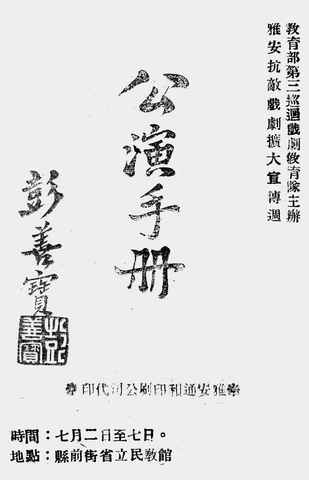 教育部第三巡迴戲劇教育隊主辦
雅安抗敵戲劇擴大宣傳週
公演手册
彭善寶
彭善寶
雅安通和印刷公司代印
時間：七月二日至七日。
地點：縣前街省立民教館